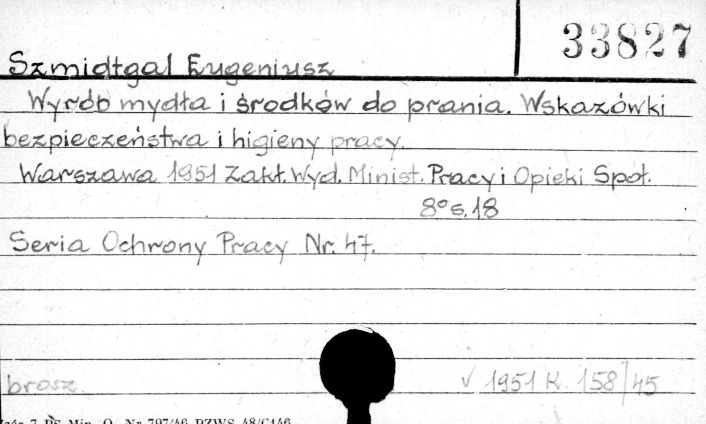 33827
Szmidtgal Eugeniusz
Wyrób mydła i środków do prania. Wskazówki
bezpieczeństwa i higieny pracy.
Warszawa 1951 Zakł. Wyd. Minist. Pracy i Opieki Społ.
8° s. 18
Seria Ochrony Pracy Nr. 47.
brosz.
√ 1951 K. 158/45
7 PS Min. O. Nr 797/46 PZWS 48/C146